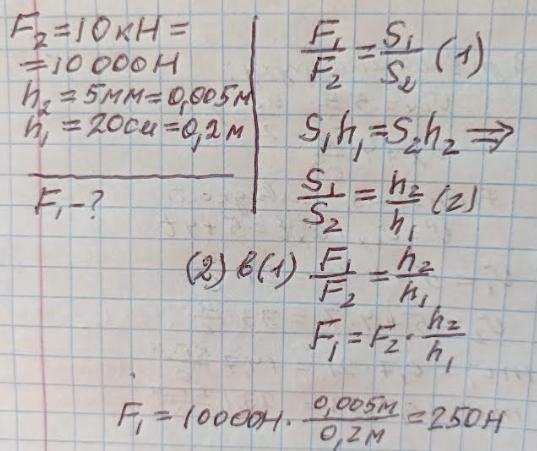 F₂ = 10 кН =
= 10 000 Н
h₂ = 5мм = 0,005м
h₁ = 20см = 0,2м
F₁ - ?
F₁/F₂ = S₁/S₂ (1)
S₁h₁ = S₂h₂ ⇒
S₁/S₂ = h₂/h₁ (2)
(2) в (1) F₁/F₂ = h₂/h₁
F₁ = F₂ · h₂/h₁
F₁ = 10000Н · 0,005м/0,2м = 250Н